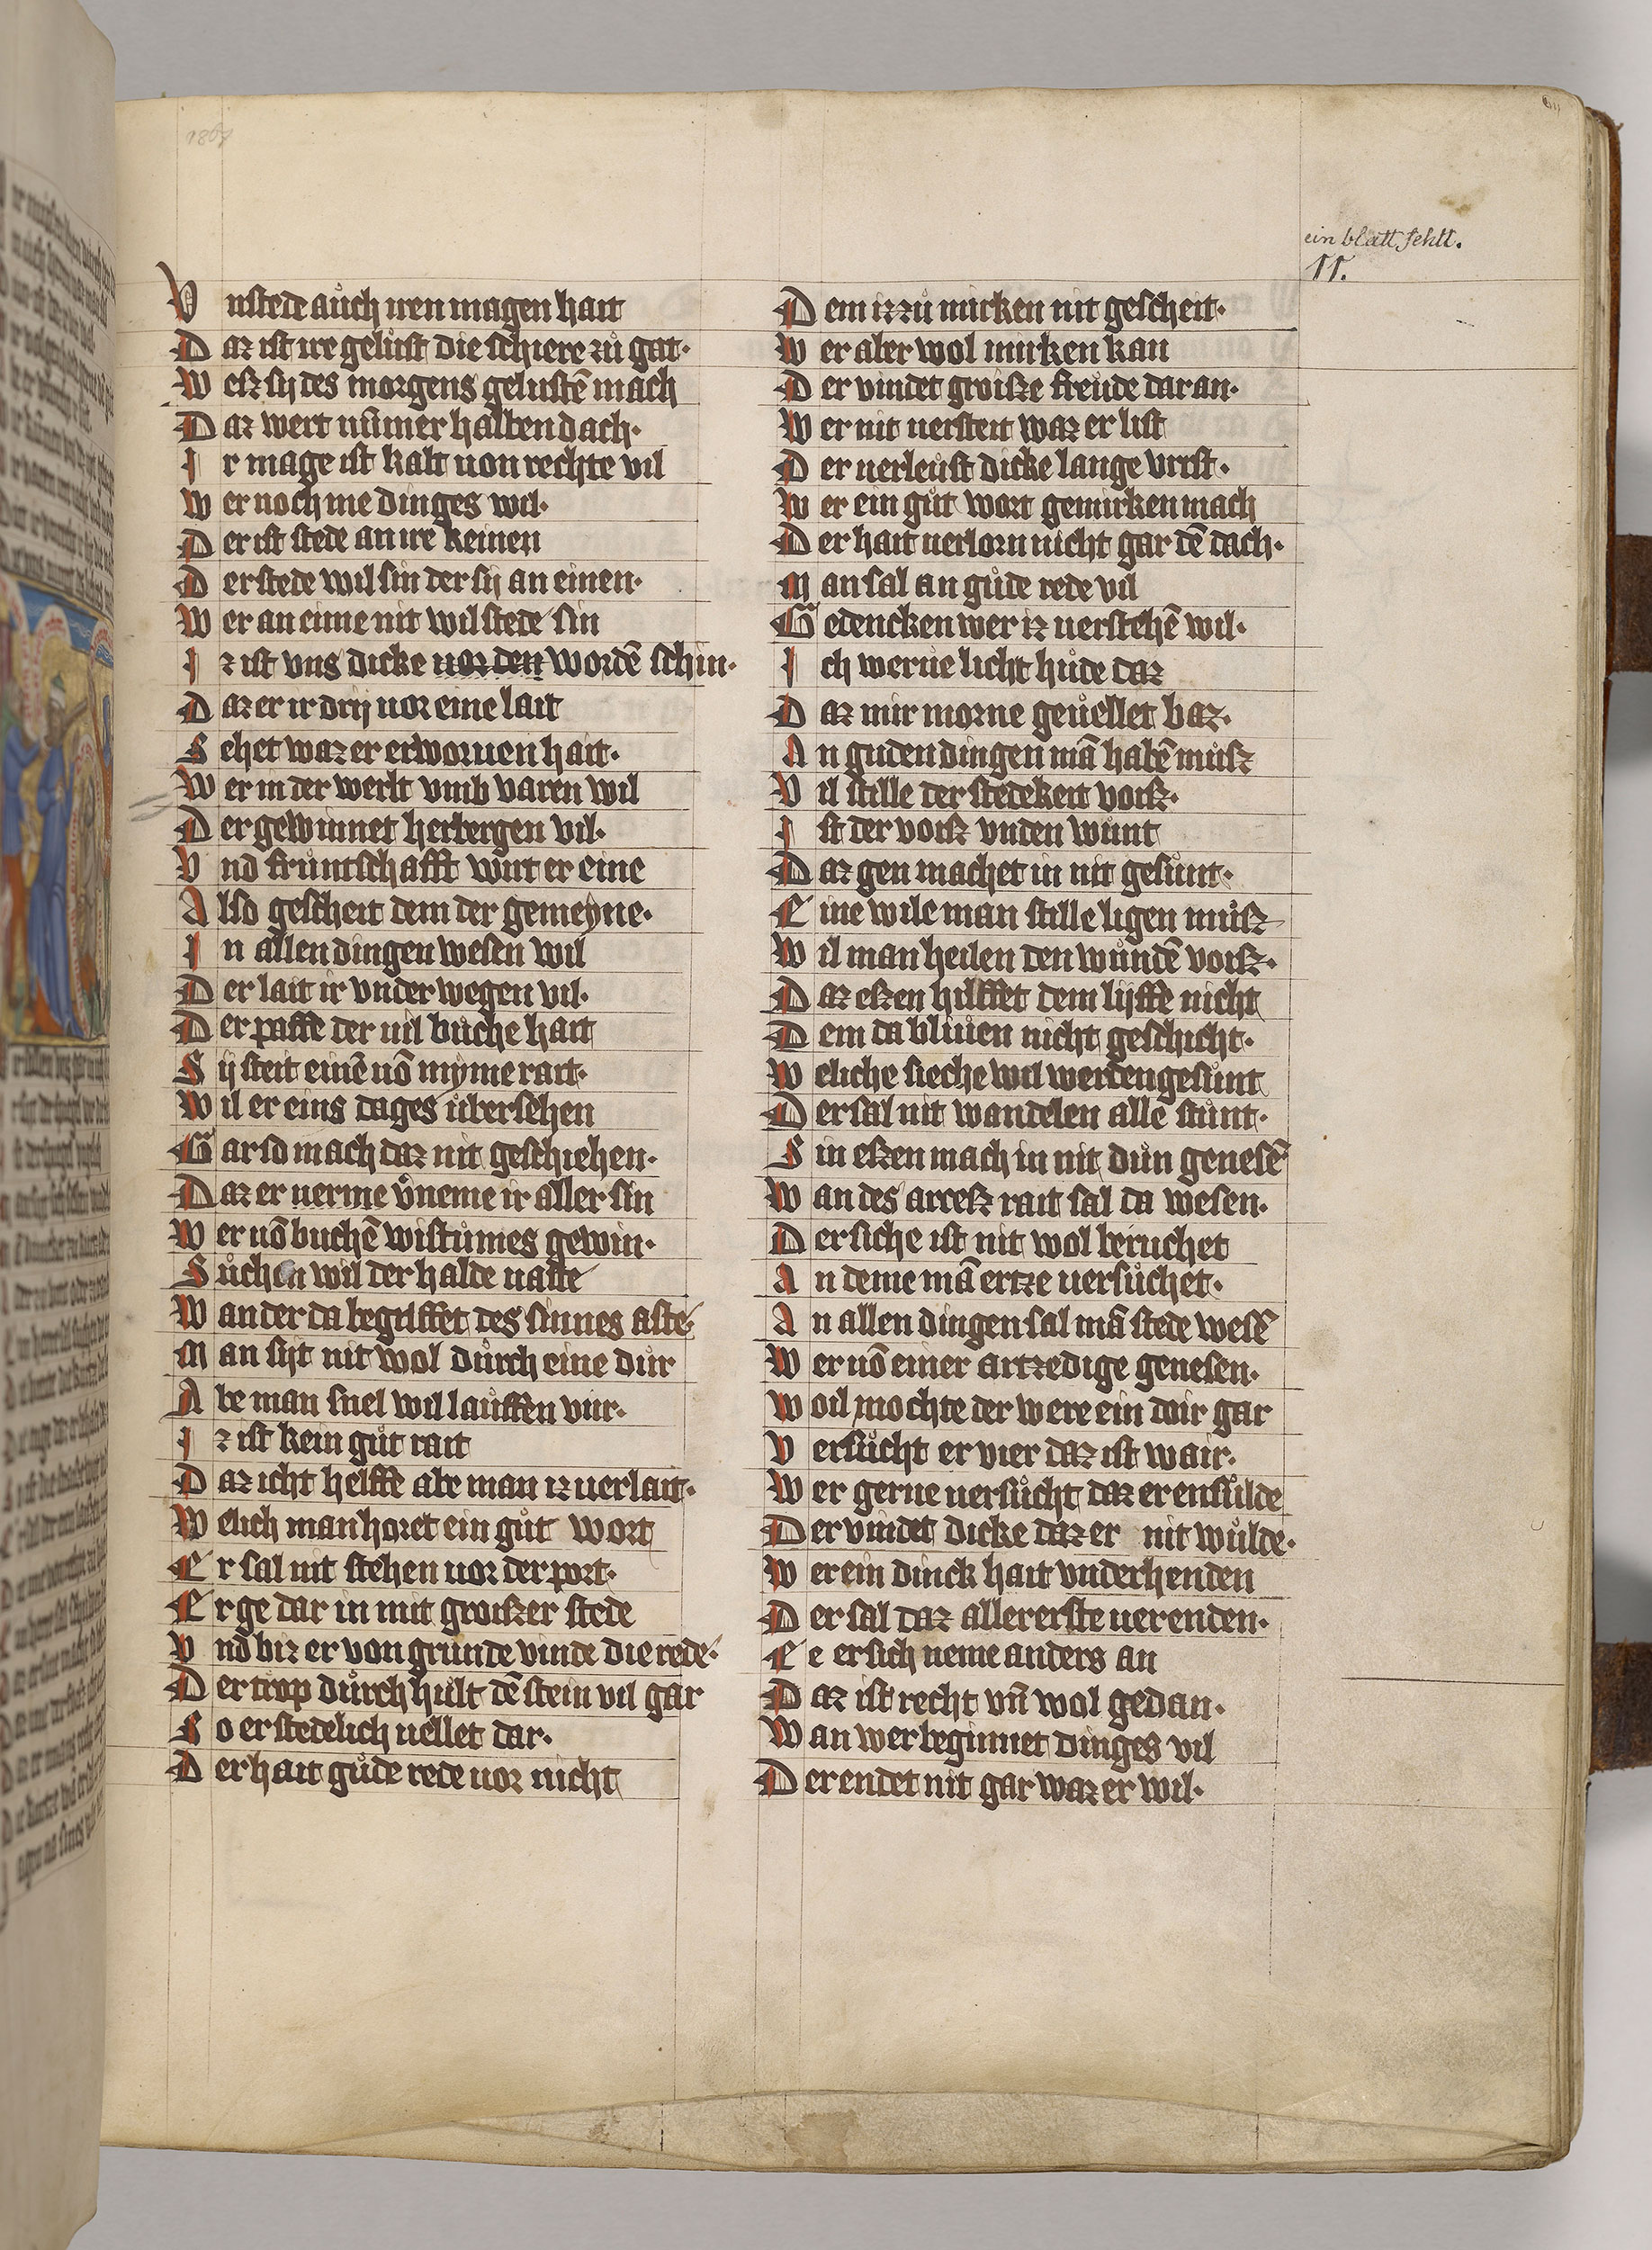 1867
ein blatt fehlt.
11.
Vnstede aůch iren magen hait
Daz ist ire gelůst die schiere zů gat·
Weſz sij des morgens gelustē mach
Daz wert nūmer halben dach·
Ir mage ist kalt uon rechte vil
Wer noch me dinges wil·
Der ist stede an ire keinen
Der stede wil sin der sij an einen·
Wer an eime nit wil stede sin
Iz ist vns dicke uor den wordē schin·
Daz er ir drij uor eine lait
Sehet waz er erworuen hait·
Wer in der werlt vmb varen wil
Der gewinnet herbergen vil·
Vnd frůntschafft wint er eine
Also gescheit dem der gemeyne·
In allen dingen wesen wil
Der lait ir vnder wegen vil·
Der paffe der uil bůche hait
Sij steit einē uō myme rait·
Wil er eins dages ůbersehen
Gar so mach daz nit geschiehen·
Daz er uerme v̊neme ir aller sin
Wer uō buchē wistůmes gewin·
Sůchen wil der halde uaste
Wan der da begriffet des sinnes aste·
Man sijt nit wol důrch eine důr
Abe man snel wil laůffen vůr·
Iz ist kein gůt rait
Daz icht helffe abe man iz uerlait·
Welich man horet ein gůt wort
Er sal nit stehen uor der port·
Er ge dar in mit groiſzer stede
Vnd biz er von grunde vinde die rede·
Der trop důrch hůlt dē stein vil gar
So er stedelich uellet dar·
Der hait gůde rede uor nicht
Dem iz zů mirken nit gescheit·
Wer aber wol mirken kan
Der vindet groiſze freůde dar an·
Wer nit uersteit waz er list
Der uerleůst dicke lange vrist·
Wer ein gůt wort gemirken mach
Der hait uerlorn nicht gar dē dach·
Man sal an gůde rede vil
Gedencken wer iz uerstehē wil·
Ich werůe licht hůde daz
Daz mir morne geůellet baz·
An guden dingen mā habē můſz
Vil stille der stedekeit voiſz·
Ist der voiſz vnden wůnt
Daz gen machet in nit gesůnt·
Eine wile man stille ligen můſz
Wil man heilen den wůndē voiſz·
Daz eſzen hilffet dem lijffe nicht
Dem da bliůen nicht geschicht·
Weliche sieche wil werden gesůnt
Der sal nit wandelen alle stůnt·
Sin eſzen mach in nit důn genesē
Wan des arreſz rait sal da wesen·
Der siche ist nit wol beruchet
An deme mā ertze uersůchet·
An allen dingen sal mā stede wesē
Wer uō einer artzedige genesen·
Woil mochte der were ein doir gar
Versůcht er vier daz ist wair·
Wer gerne uersůcht daz er ensůlde
Der vindet dicke daz er nit wůlde·
Wer ein dinck hait vnderhenden
Der sal daz allererste uerenden·
Ee er sich neme anders an
Daz ist recht vn̄ wol gedan·
Wan wer beginnet dinges vil
Der endet nit gar waz er wil·